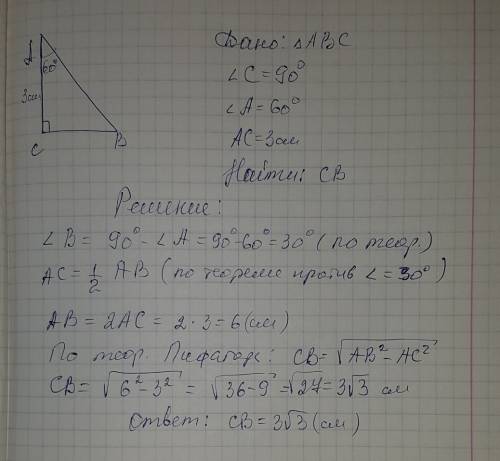 A
60°
3см
C
B
Дано: △ABC
∠C = 90°
∠A = 60°
AC = 3см
Найти: CB
Решение:
∠B = 90° - ∠A = 90° - 60° = 30° (по теор.)
AC = 1/2 AB (по теореме против ∠ = 30°)
AB = 2AC = 2 · 3 = 6 (см)
По теор. Пифагора: CB = √(AB² - AC²)
CB = √(6² - 3²) = √(36 - 9) = √27 = 3√3 см
Ответ: CB = 3√3 (см)